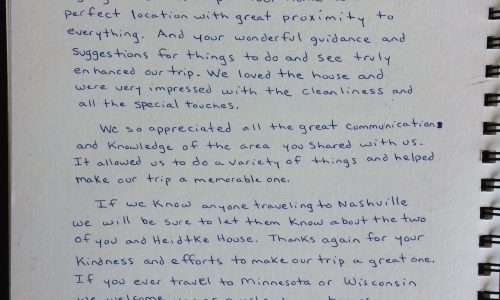 perfect location with great proximity to
everything. And your wonderful guidance and
suggestions for things to do and see truly
enhanced our trip. We loved the house and
were very impressed with the cleanliness and
all the special touches.
We so appreciated all the great communications
and knowledge of the area you shared with us.
It allowed us to do a variety of things and helped
make our trip a memorable one.
If we know anyone traveling to Nashville
we will be sure to let them know about the two
of you and Heidtke House. Thanks again for your
kindness and efforts to make our trip a great one.
If you ever travel to Minnesota or Wisconsin
we welcome